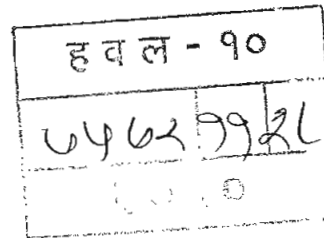 हवल - १०
७५७२ ११ २८